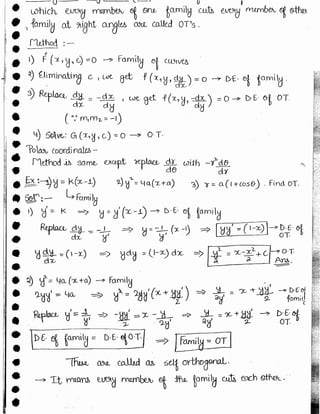 which every member of one family cuts every member of other
family at right angles are called OT's.
Method :—
1) F(x, y, c) = 0 → Family of curves
2) Eliminating c, we get f(x, y, dy/dx) = 0 → D.E. of family.
3) Replace dy/dx = -dx/dy, we get f(x, y, -dx/dy) = 0 → D.E. of OT.
(∵ m₁m₂ = -1)
4) Solve: G(x, y, c) = 0 → O.T.
Polar coordinates –
Method is same except replace dr/dθ with -r² dθ/dr
Ex:– 1) y = k(x-1) 2) y² = 4a(x+a) 3) r = a(1+cosθ). Find OT.
Sol:— ↳ Family
1) y' = k ⇒ y = y'(x-1) → D.E. of family
Replace dy/dx = -1/y' ⇒ y = -1/y' (x-1) ⇒ yy' = (1-x) → D.E. of OT.
y dy/dx = (1-x) ⇒ ydy = (1-x)dx ⇒ y²/2 = x - x²/2 + c → O.T. Ans.
2) y² = 4a(x+a) → Family
2yy' = 4a ⇒ y² = 2yy'(x + yy'/2) ⇒ y/2y' = x + yy'/2 → D.E. of family
Replace y' = -1/y' ⇒ -yy'/2 = x - y/2y' ⇒ y/2y' = x + yy'/2 → D.E. of OT.
D.E. of family = D.E. of O.T. ⇒ Family = OT
These are called as self orthogonal.
→ It means every member of the family cuts each other.